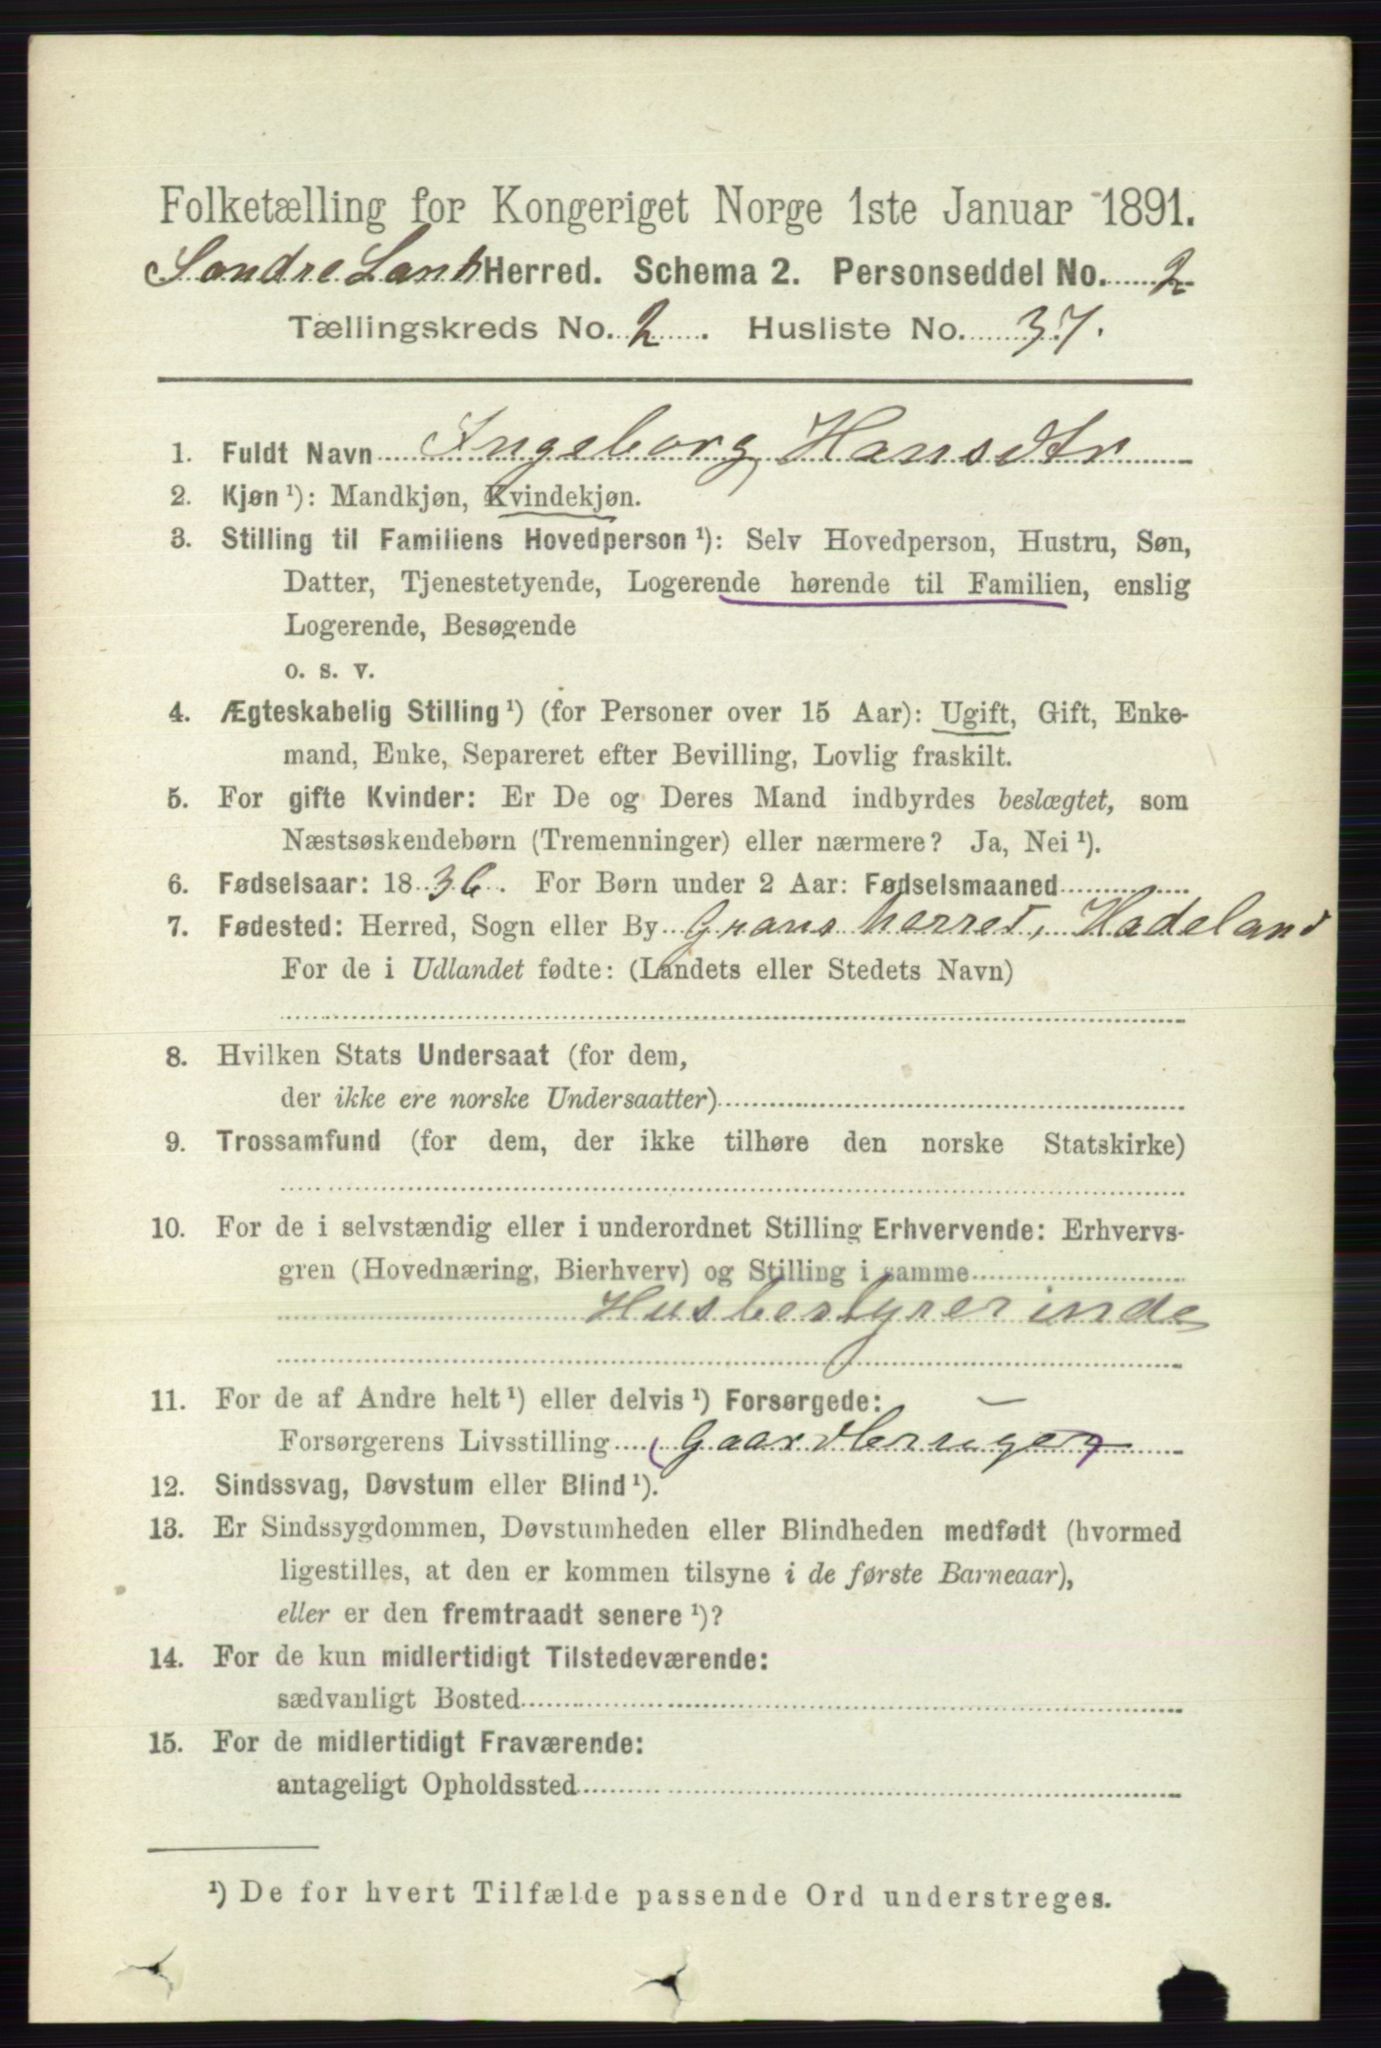 Folketælling for Kongeriget Norge 1ste Januar 1891.
Søndre Land Herred. Schema 2. Personseddel No. 2
Tællingskreds No. 2. Husliste No. 37.
1. Fuldt Navn Ingeborg Hansdtr
2. Kjøn ¹): Mandkjøn, Kvindekjøn.
3. Stilling til Familiens Hovedperson ¹): Selv Hovedperson, Hustru, Søn,
Datter, Tjenestetyende, Logerende hørende til Familien, enslig
Logerende, Besøgende
o. s. v.
4. Ægteskabelig Stilling ¹) (for Personer over 15 Aar): Ugift, Gift, Enke-
mand, Enke, Separeret efter Bevilling, Lovlig fraskilt.
5. For gifte Kvinder: Er De og Deres Mand indbyrdes beslægtet, som
Næstsøskendebørn (Tremenninger) eller nærmere? Ja, Nei ¹).
6. Fødselsaar: 1836. For Børn under 2 Aar: Fødselsmaaned
7. Fødested: Herred, Sogn eller By Grans herred, Hadeland
For de i Udlandet fødte: (Landets eller Stedets Navn)
8. Hvilken Stats Undersaat (for dem,
der ikke ere norske Undersaatter)
9. Trossamfund (for dem, der ikke tilhøre den norske Statskirke)
10. For de i selvstændig eller i underordnet Stilling Erhvervende: Erhvervs-
gren (Hovednæring, Bierhverv) og Stilling i samme
Husbestyrerinde
11. For de af Andre helt ¹) eller delvis ¹) Forsørgede:
Forsørgerens Livsstilling (Gaardbruger)
12. Sindssvag, Døvstum eller Blind ¹).
13. Er Sindssygdommen, Døvstumheden eller Blindheden medfødt (hvormed
ligestilles, at den er kommen tilsyne i de første Barneaar),
eller er den fremtraadt senere ¹)?
14. For de kun midlertidigt Tilstedeværende:
sædvanligt Bosted
15. For de midlertidigt Fraværende:
antageligt Opholdssted
¹) De for hvert Tilfælde passende Ord understreges.